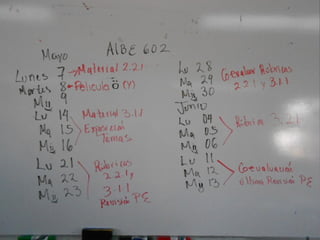 AlBE 602
Mayo
Lunes 7 Material 2.2.1
Martes 8 Película (Y)
Mi 9
Lu 14 Material 3.1.1
Ma 15 Exposición
Mi 16 Temas
Lu 21 Rúbricas
Ma 22 2.2.1 y
Mi 23 3.1.1
Revisión PE
Lu 28 Coevaluar Rúbricas
Ma 29 2.2.1 y 3.1.1
Mi 30
Junio
Lu 04
Ma 05 Rúbrica 3.2.1
Mi 06
Lu 11
Ma 12 Coevaluación
My 13 última Revisión PE